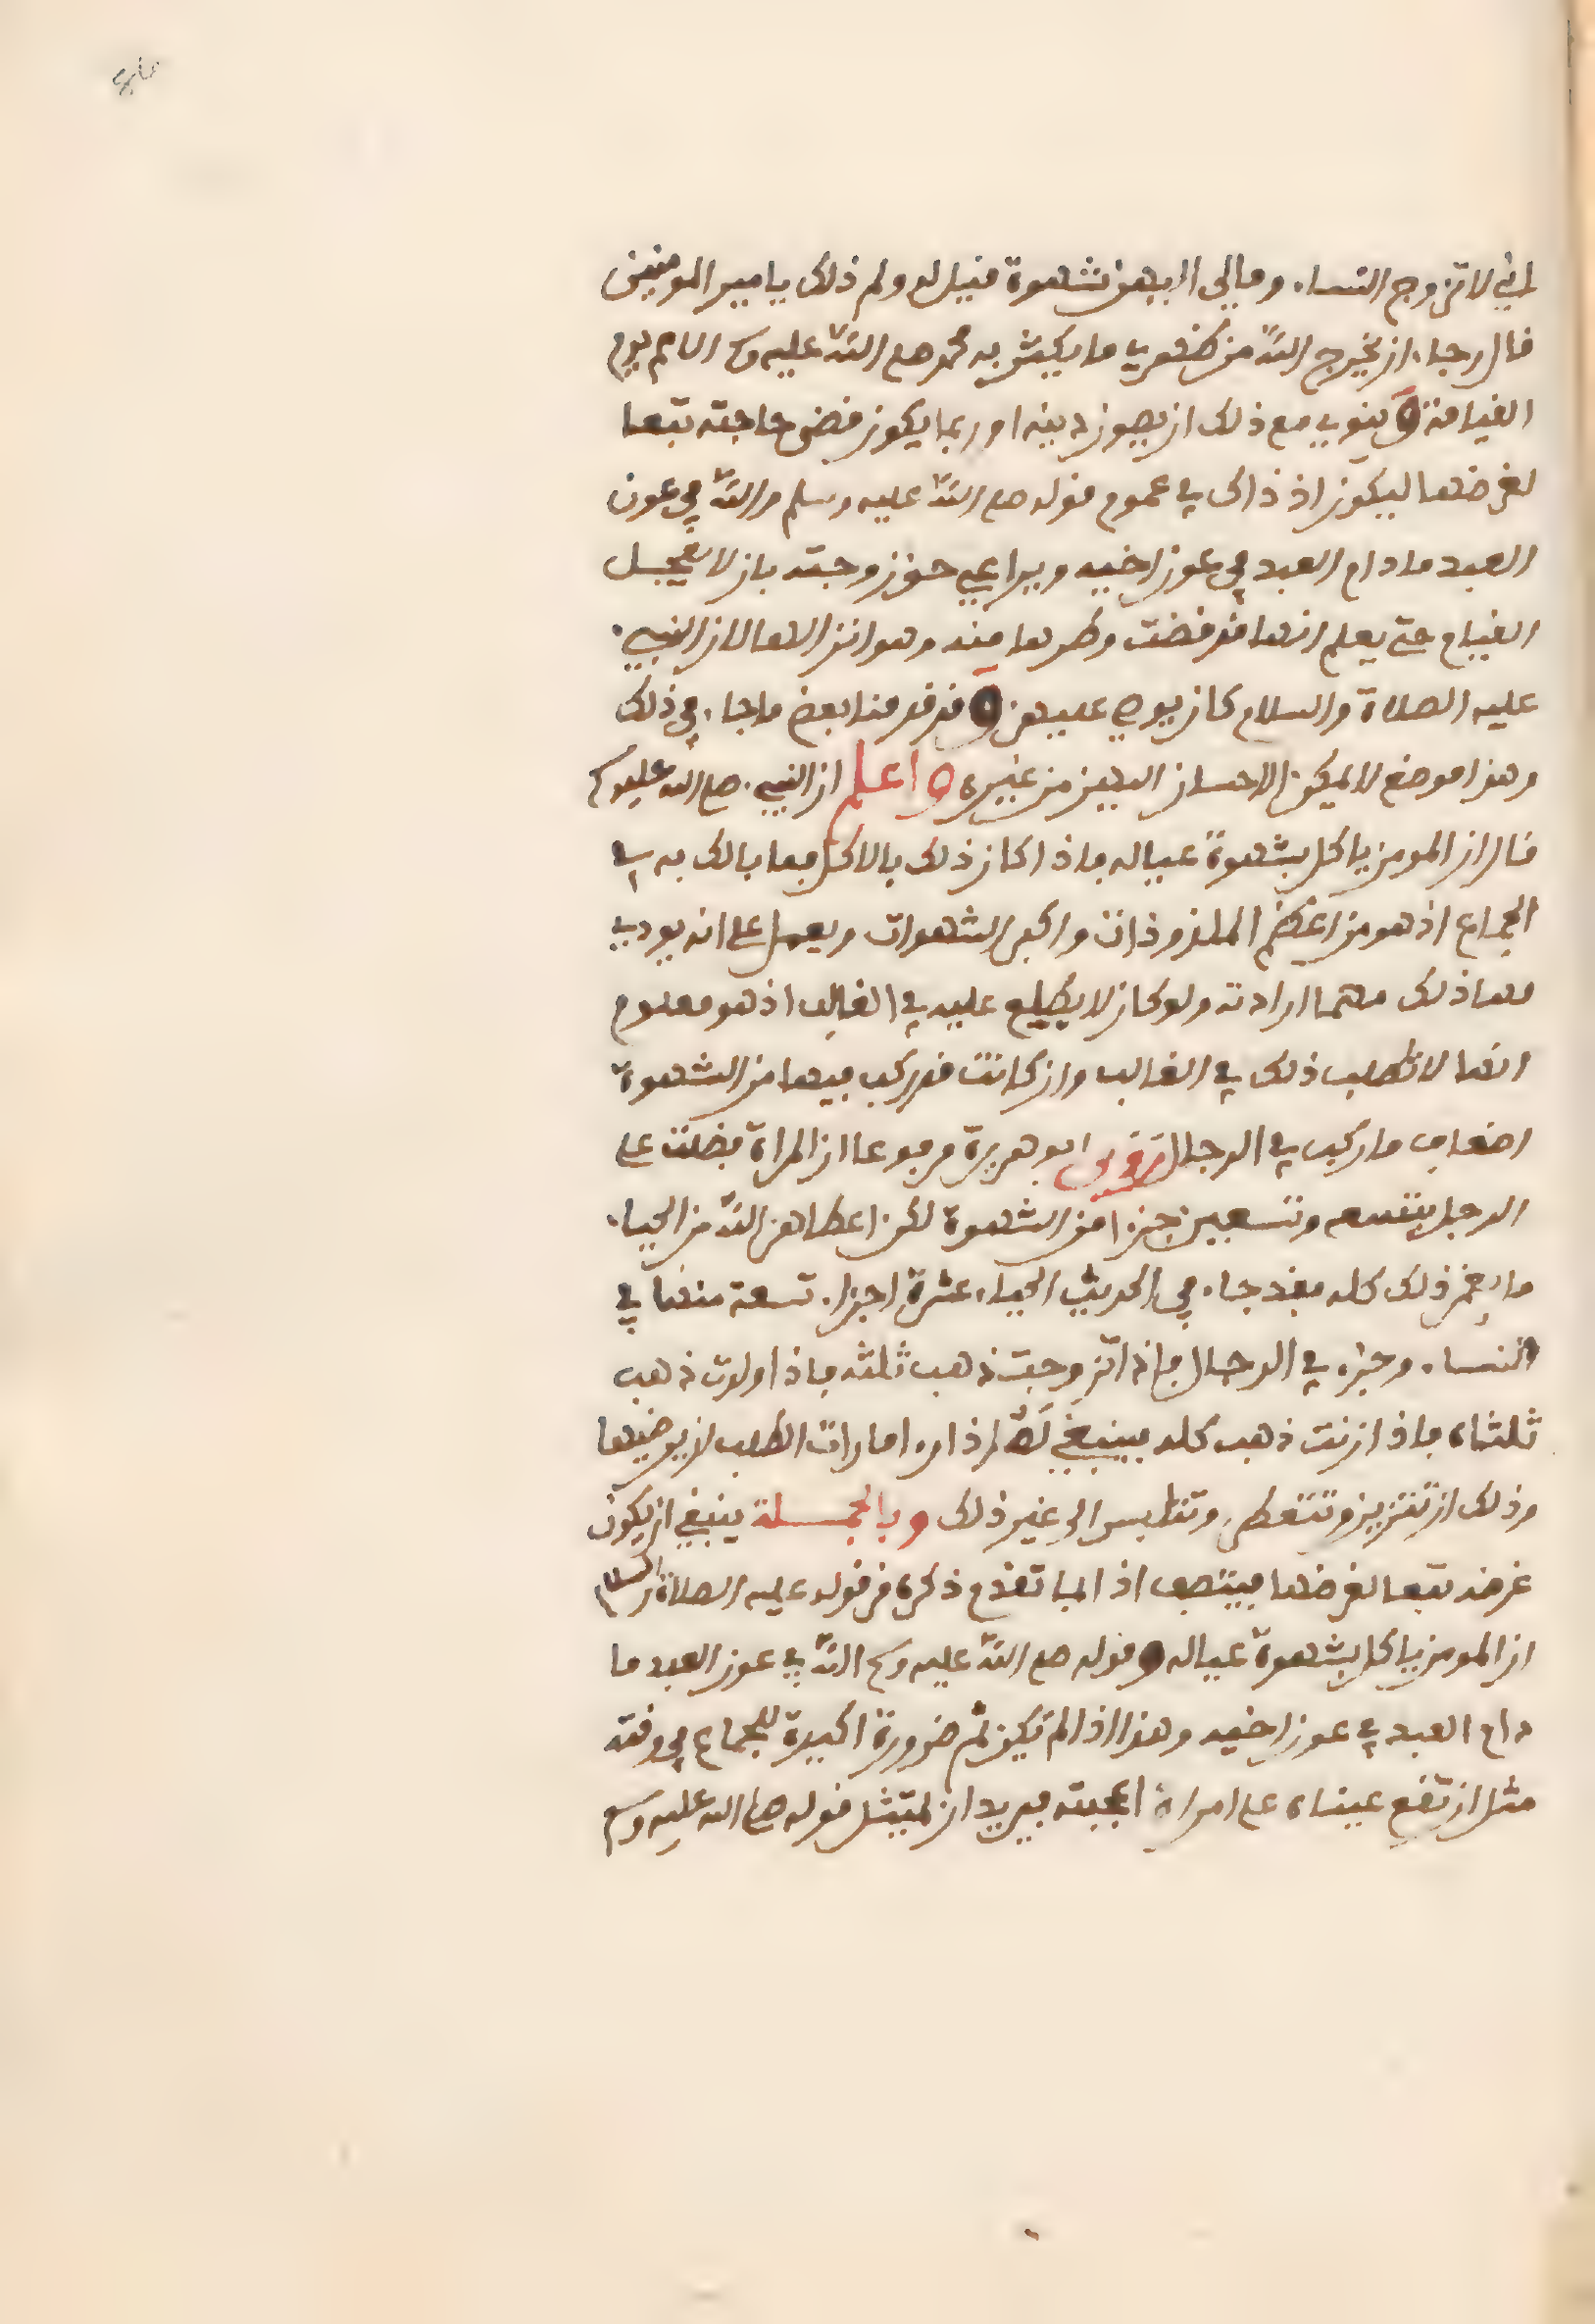 اني لاتزوج النساء وما لي اليهن شهوة قيل له ولم ذلك يا امير المومنين
قال رجاء ان يخرج الله من ظهري ما يكثر به محمد صلى الله عليه وسلم الامم يوم
القيامة وينوي مع ذلك ان يصون دينه او ربما يكون قضى حاجته تبعا
لغرضها ليكون اذ ذاك في عموم قوله صلى الله عليه وسلم والله في عون
العبد ما دام العبد في عون اخيه ويراعي حق زوجته بان لا يعجل
القيام حتى يعلم انها قد قضت وطرها منه وهو انزالها لان النبي
عليه الصلاة والسلام كان يوصي عليهن وقد قدمنا بعض ما جاء في ذلك
وهذا موضع لا يمكن الاحسان اليهن من غيره واعلم ان النبي صلى الله عليه وسلم
قال ان المومن ياكل بشهوة عياله فاذا كان ذلك بالاكل فما بالك به في
الجماع اذ هو من اعظم الملذوذات واكبر الشهوات ويعمل على انه يودي
لها ذلك مهما ارادته ولو كان لا يطلع عليه في الغالب اذ هو معلوم
انها لا تطلب ذلك في الغالب وان كانت قد ركب فيها من الشهوة
اضعاف ما ركب في الرجال روى ابو هريرة مرفوعا ان المراة فضلت على
الرجل بتسعة وتسعين جزءا من الشهوة لكن اعطاهن الله من الحياء
ما يغمر ذلك كله فقد جاء في الحديث الحياء عشرة اجزاء تسعة منها في
النساء وجزء في الرجال فاذا تزوجت ذهب ثلثه فاذا ولدت ذهب
ثلثاه فاذا زنت ذهب كله فينبغي له اذا راى امارات الطلب ان يرضيها
وذلك ان تتزين وتتعطر وتتلبس الى غير ذلك وبالجملة ينبغي ان يكون
غرضه تبعا لغرضها فيتصف اذا بما تقدم ذكره من قوله عليه الصلاة والسلام
ان المومن ياكل بشهوة عياله وقوله صلى الله عليه وسلم الله في عون العبد ما
دام العبد في عون اخيه وهذا اذا لم تكن ثم ضرورة اكيدة للجماع في وقته
مثل ان تقع عيناه على امراة اعجبته فيريد ان يمتثل قوله صلى الله عليه وسلم